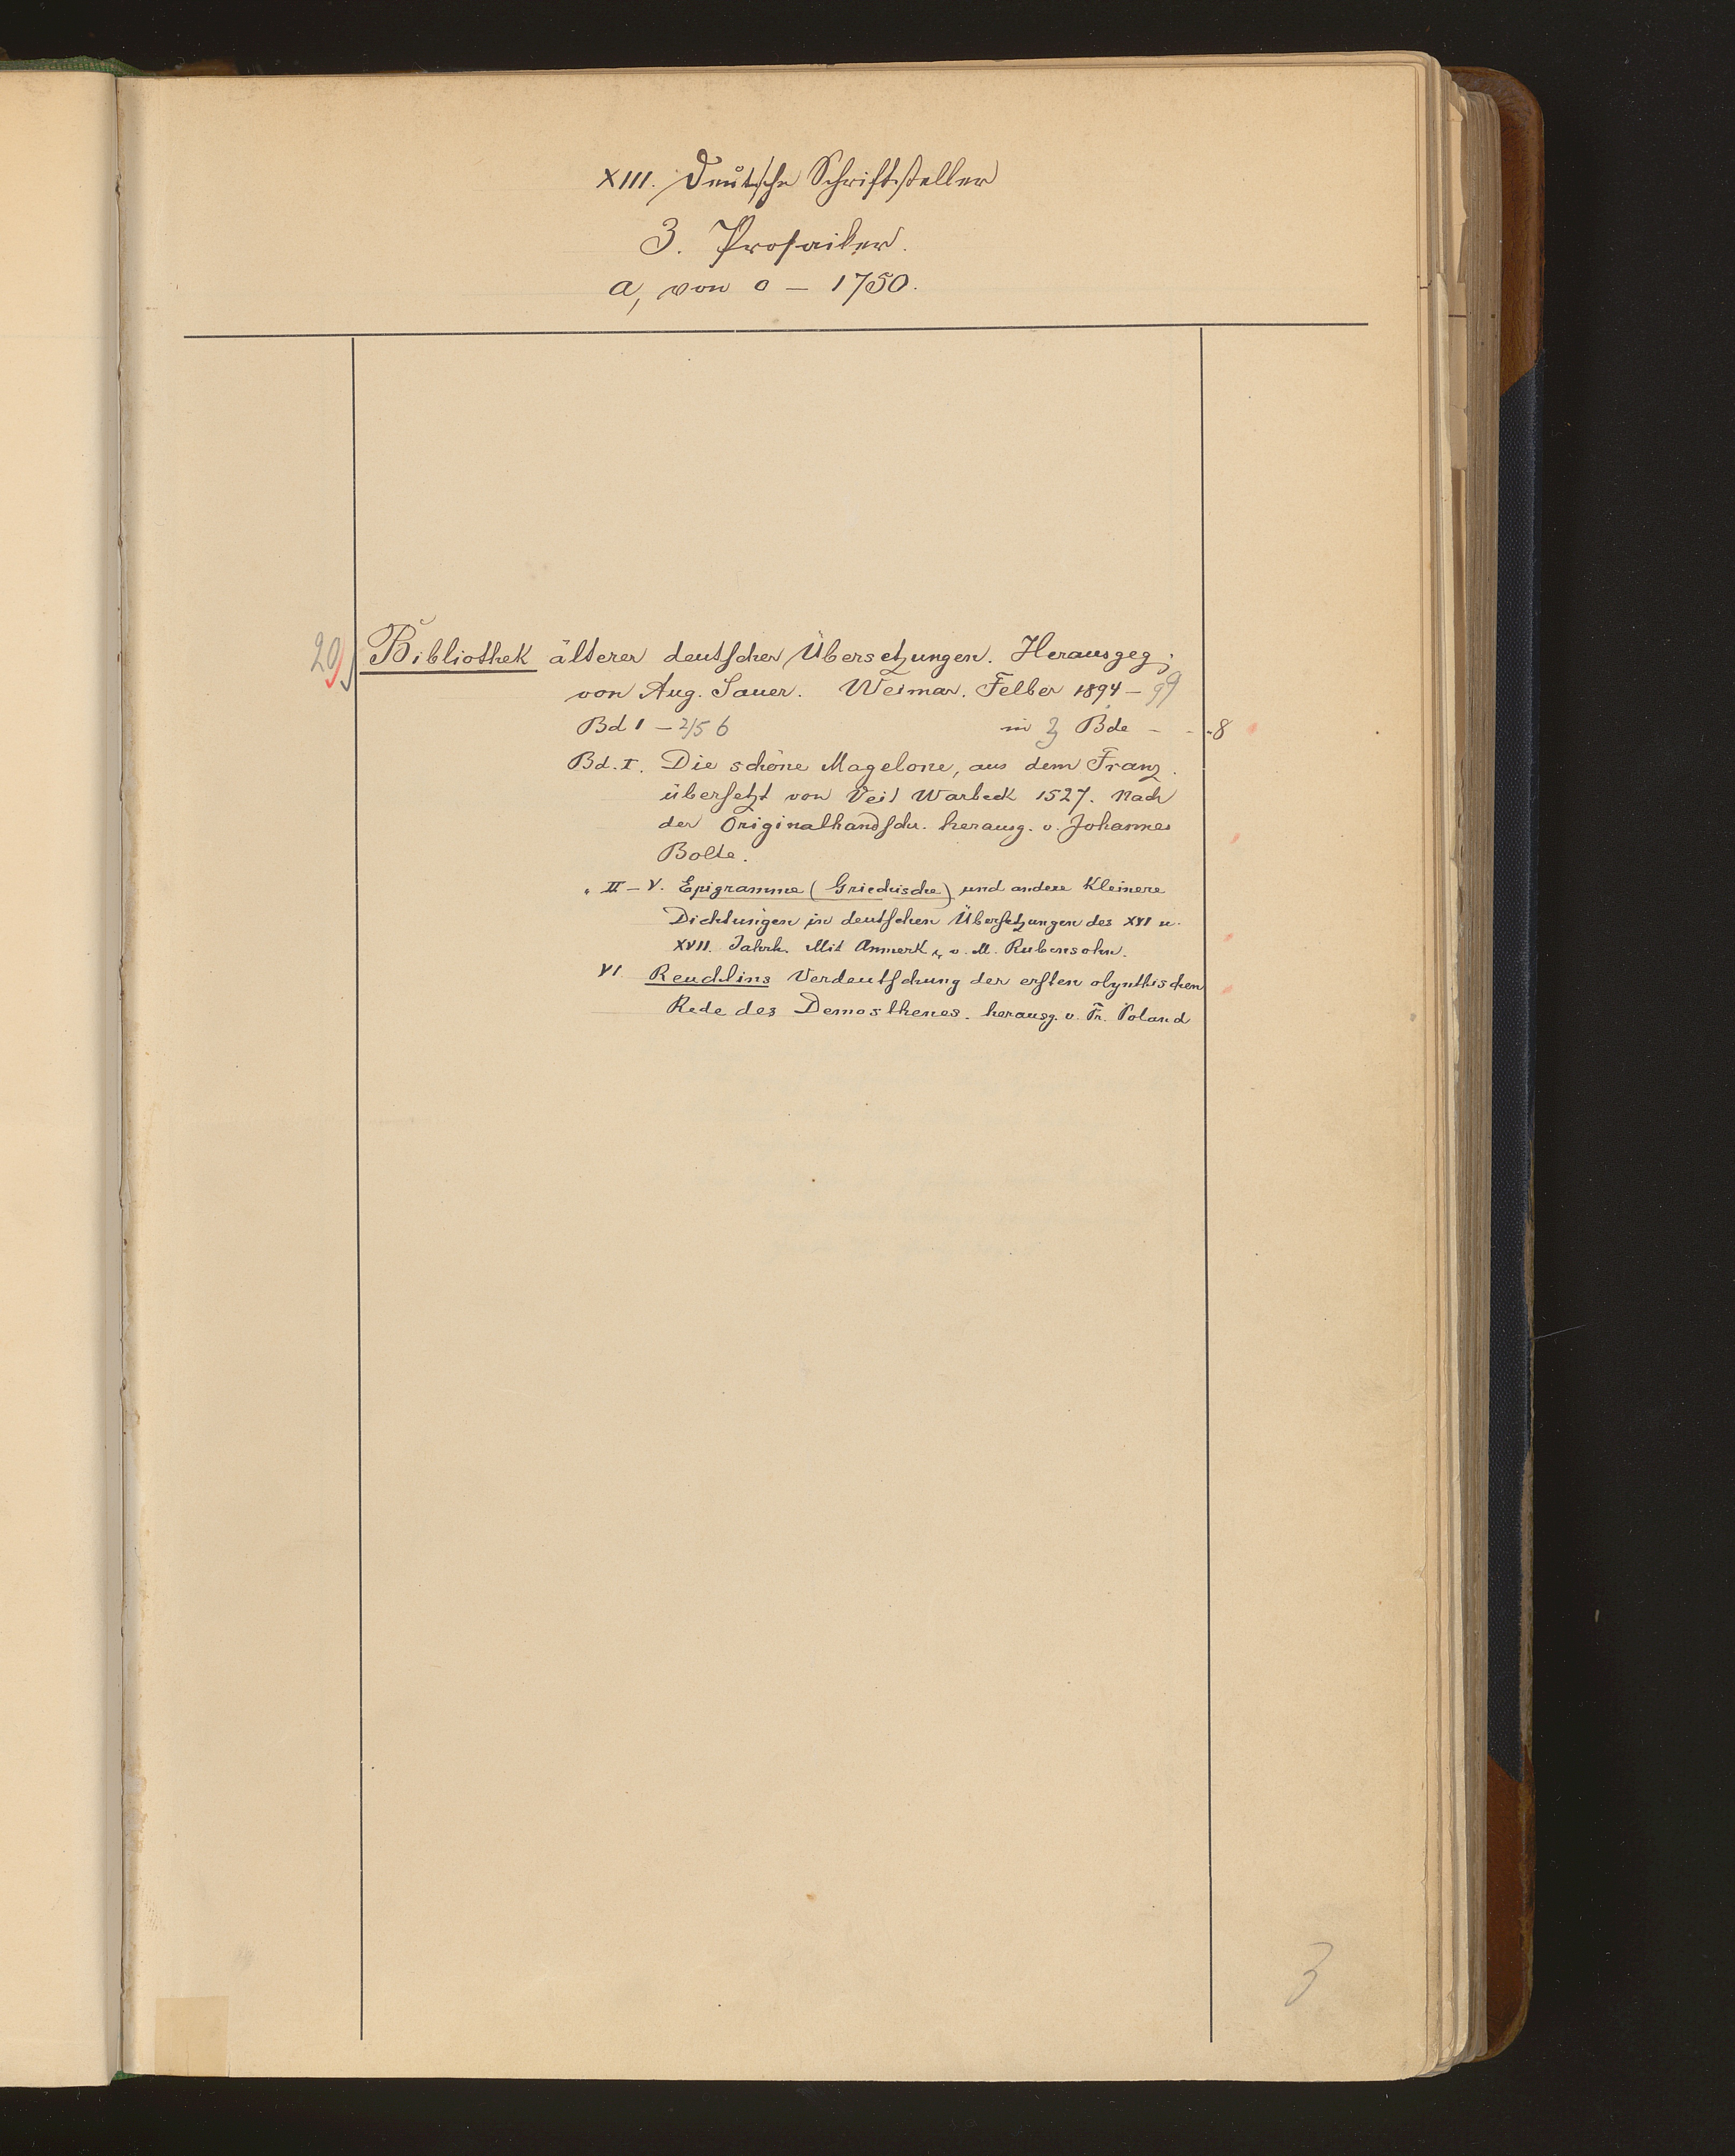 XIII. Deutsche Schriftsteller
3. Prosaiker.
a, von 0 – 1750.
20 Bibliothek älterer deutscher Übersetzungen. Herausgeg.
von Aug. Sauer. Weimar. Felber 1894 – 99
Bd 1 – 2/5 6 in 3 Bde - - 8
Bd. I. Die schöne Magelone, aus dem Franz.
übersetzt von Veit Warbeck 1527. Nach
der Originalhandschr. herausg. v. Johannes
Bolte.
" II – V. Epigramme (Griechische) und andere kleinere
Dichtungen in deutschen Übersetzungen des XVI u.
XVII. Jahrh. Mit Anmerk. v. M. Rubensohn.
VI. Reuchlins Verdeutschung der ersten olynthischen
Rede des Demosthenes. herausg. v. Fr. Poland
3